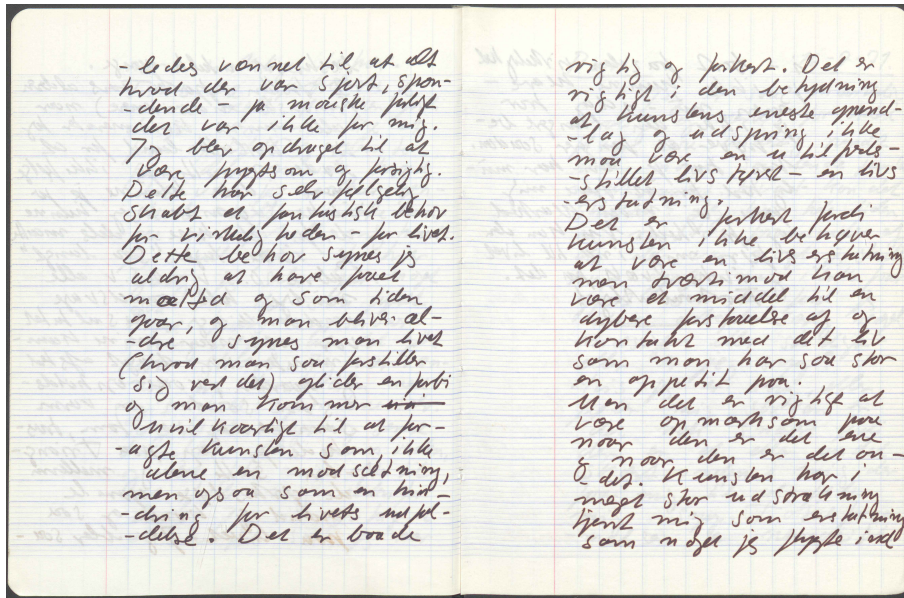 -ledes vænnet til at alt
hvad der var sjovt, spæn-
-dende - ja måske farligt
det var ikke for mig.
Jeg blev opdraget til at
være frygtsom og forsigtig.
Dette har selvfølgelig
skabt et fantastisk behov
for virkeligheden - for livet.
Dette behov synes jeg
aldrig at have faaet
mætted og som tiden
gaar, og man bliver æl-
-dre synes man livet
(hvad man saa forstiller
sig ved det) glider en forbi
og man kommer
uvilkaarligt til at for-
-agte kunsten som, ikke
alene en modsætning,
men ogsaa som en hin-
-dring for livets udfol-
-delse. Det er baade
rigtig og forkert. Det er
rigtigt i den betydning
at kunstens eneste grund-
-lag og udspring ikke
maa være en utilfreds-
-stillet livstørst - en livs
-erstatning.
Det er forkert fordi
kunsten ikke behøver
at være en livserstatning
men tværtimod kan
være et middel til en
dybere forstaaelse af og
kontakt med det liv
som man har saa stor
en appetit paa.
Men det er vigtigt at
være opmærksom paa
naar den er det ene
og naar den er det an-
-det. Kunsten har i
meget stor udstrækning
tjent mig som erstatning
som noget jeg flygte ind